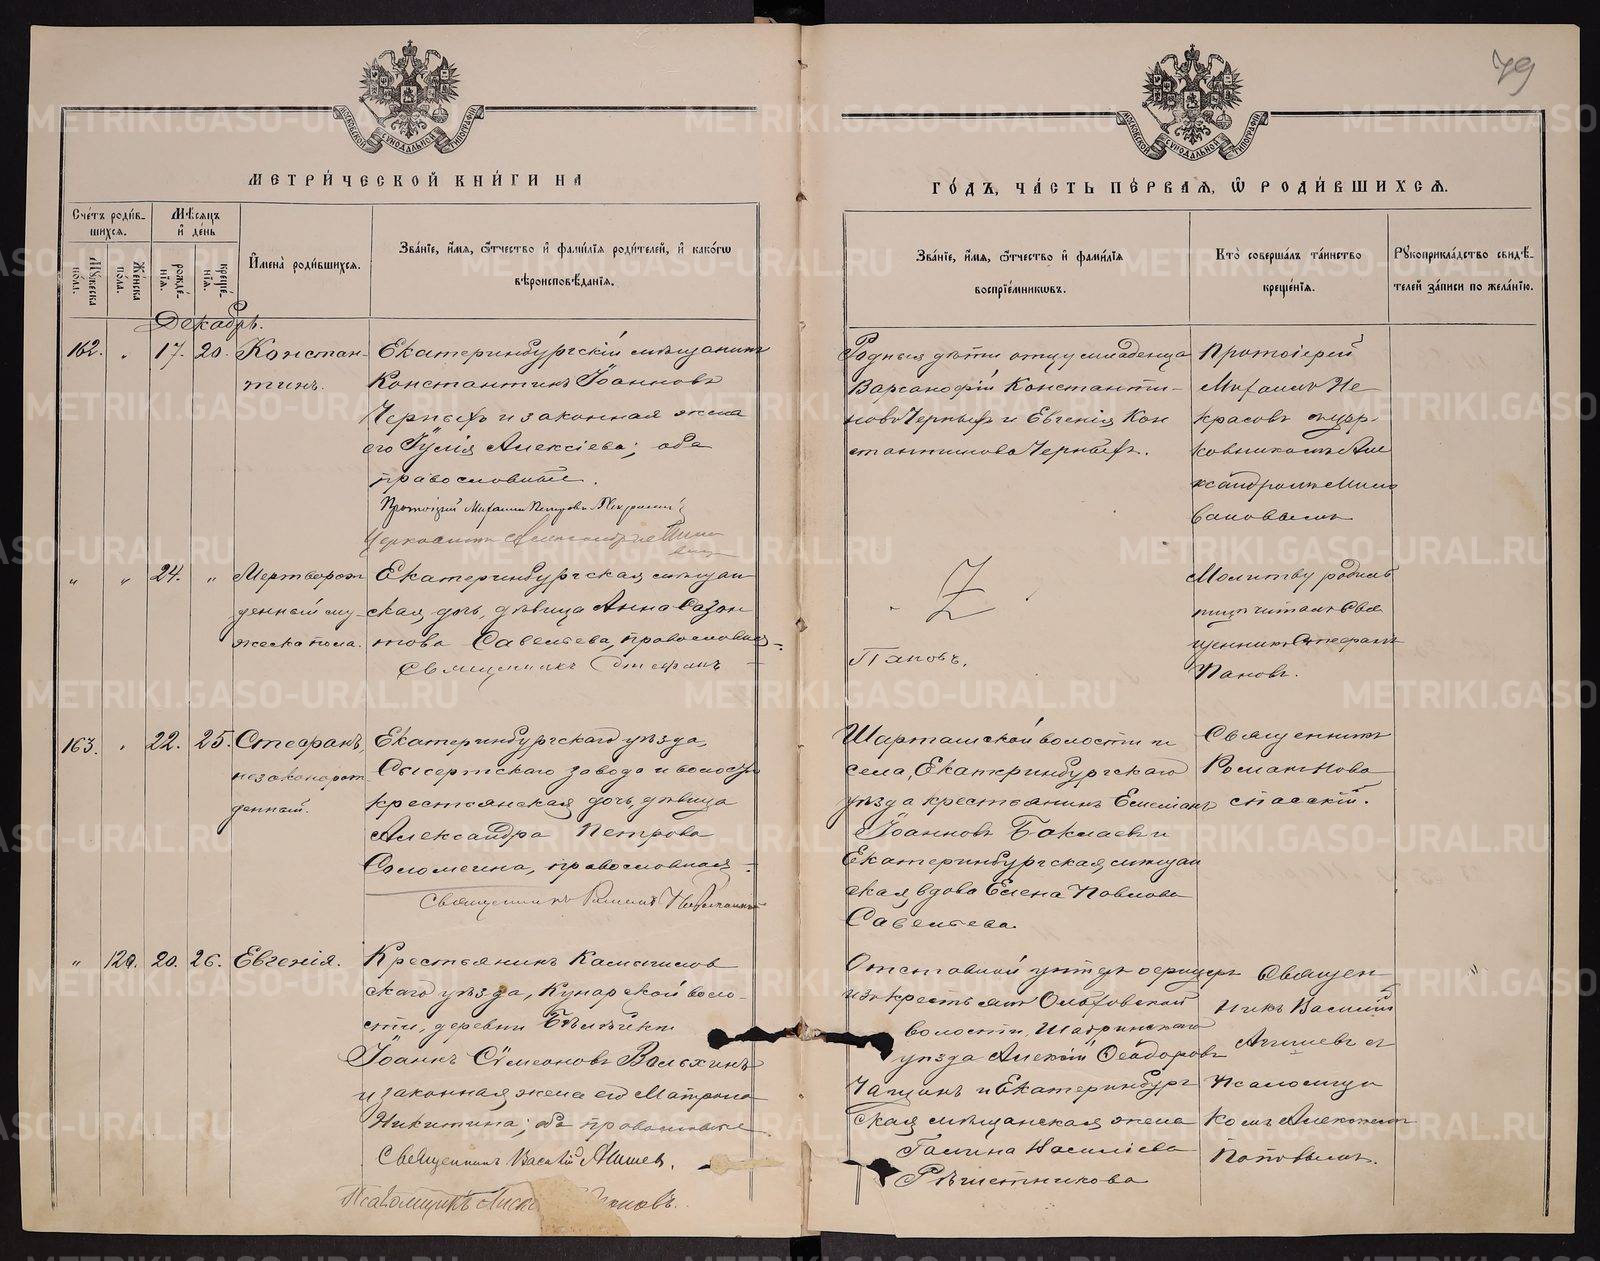 79
МОСКОВСКОЙ СѴНОДАЛЬНОЙ ТИПОГРАФІИ
МОСКОВСКОЙ СѴНОДАЛЬНОЙ ТИПОГРАФІИ
МЕТРИ́ЧЕСКОЙ КНИ́ГИ НА
ГО́ДЪ, ЧА́СТЬ ПЕ́РВАЯ, Ѽ РОДИ́ВШИХСЯ.
Сче́тъ роди́в-
шихся.
Му́жеска по́ла.
Же́нска по́ла.
Мѣ́сяцъ
и҆ де́нь
рожде́-
нїя.
креще́-
нїя.
И҆мена̀ роди́вшихся.
Зва́нїе, и҆́мя, ѻ҆́тчество и҆ фамı́лїя роди́телей, и҆ како́гѡ
вѣроисповѣ́данїя.
Зва́нїе, и҆́мя, ѻ҆́тчество и҆ фамı́лїя
воспрїе́мникѡвъ.
Кто̀ соверша́лъ та́инство
креще́нїя.
Рꙋкоприкла́дство свидѣ́-
телей за́писи по жела́нїю.
Декабрь.
162. „ 17. 20. Констан-
тинъ.
Екатеринбургскій мѣщанинъ
Константинъ Іоанновъ
Черныхъ и законная жена
его Іулія Алексіева; оба
православные.
Протоіерей Михаилъ Петровъ Некрасовъ
Родныя дѣти отцу младенца
Варсанофій Константи-
новъ Черныхъ и Евгенія Кон
стантинова Черныхъ.
Протоіерей
Михаилъ Не
красовъ
„ „ 24. „ Мертворож
денный му-
жеска пола.
Екатеринбургская мѣщан
ская дочь, дѣвица Анна Сазон
това Савельева, православная.
Священникъ Стефанъ
Пановъ.
Молитву родиль
ницѣ читалъ Свя
щенникъ Стефанъ
Пановъ.
163. „ 22. 25. Стефанъ,
незаконорож
денный.
Екатеринбургскаго уѣзда,
Сысертскаго завода и волости
крестьянская дочь, дѣвица
Александра Петрова
Соломеина, православная
Священникъ Романъ Новоспасскій
Шарташской волости и
села, Екатеринбургскаго
уѣзда крестьянинъ Емелианъ
Іоанновъ Баклаевъ и
Екатеринбургская мѣщан
ская, вдова Елена Павлова
Савельева.
Священникъ
Романъ Ново
спасскій.
„ 120. 20. 26. Евгенія.
Крестьянинъ Камышлов
скаго уѣзда, Кунарской воло-
сти, деревни Бѣлѣйки
Іоаннъ Сѵмеоновъ Вальхинъ
и законная жена его Матрона
Никитина; оба православные
Священникъ Василій Агишев.
Псаломщикъ
Отставной унтеръ офицеръ
изъ крестьянъ Ольховской
волости, Шадринскаго
уѣзда Алексій Ѳеодоровъ
Чащинъ и Екатеринбург
ская мѣщанская жена
Галина Василіева
Рѣшетникова
Священ
никъ Василій
Агишевъ съ
Псаломщи
комъ
Поповымъ.
METRIKI.GASO-URAL.RU